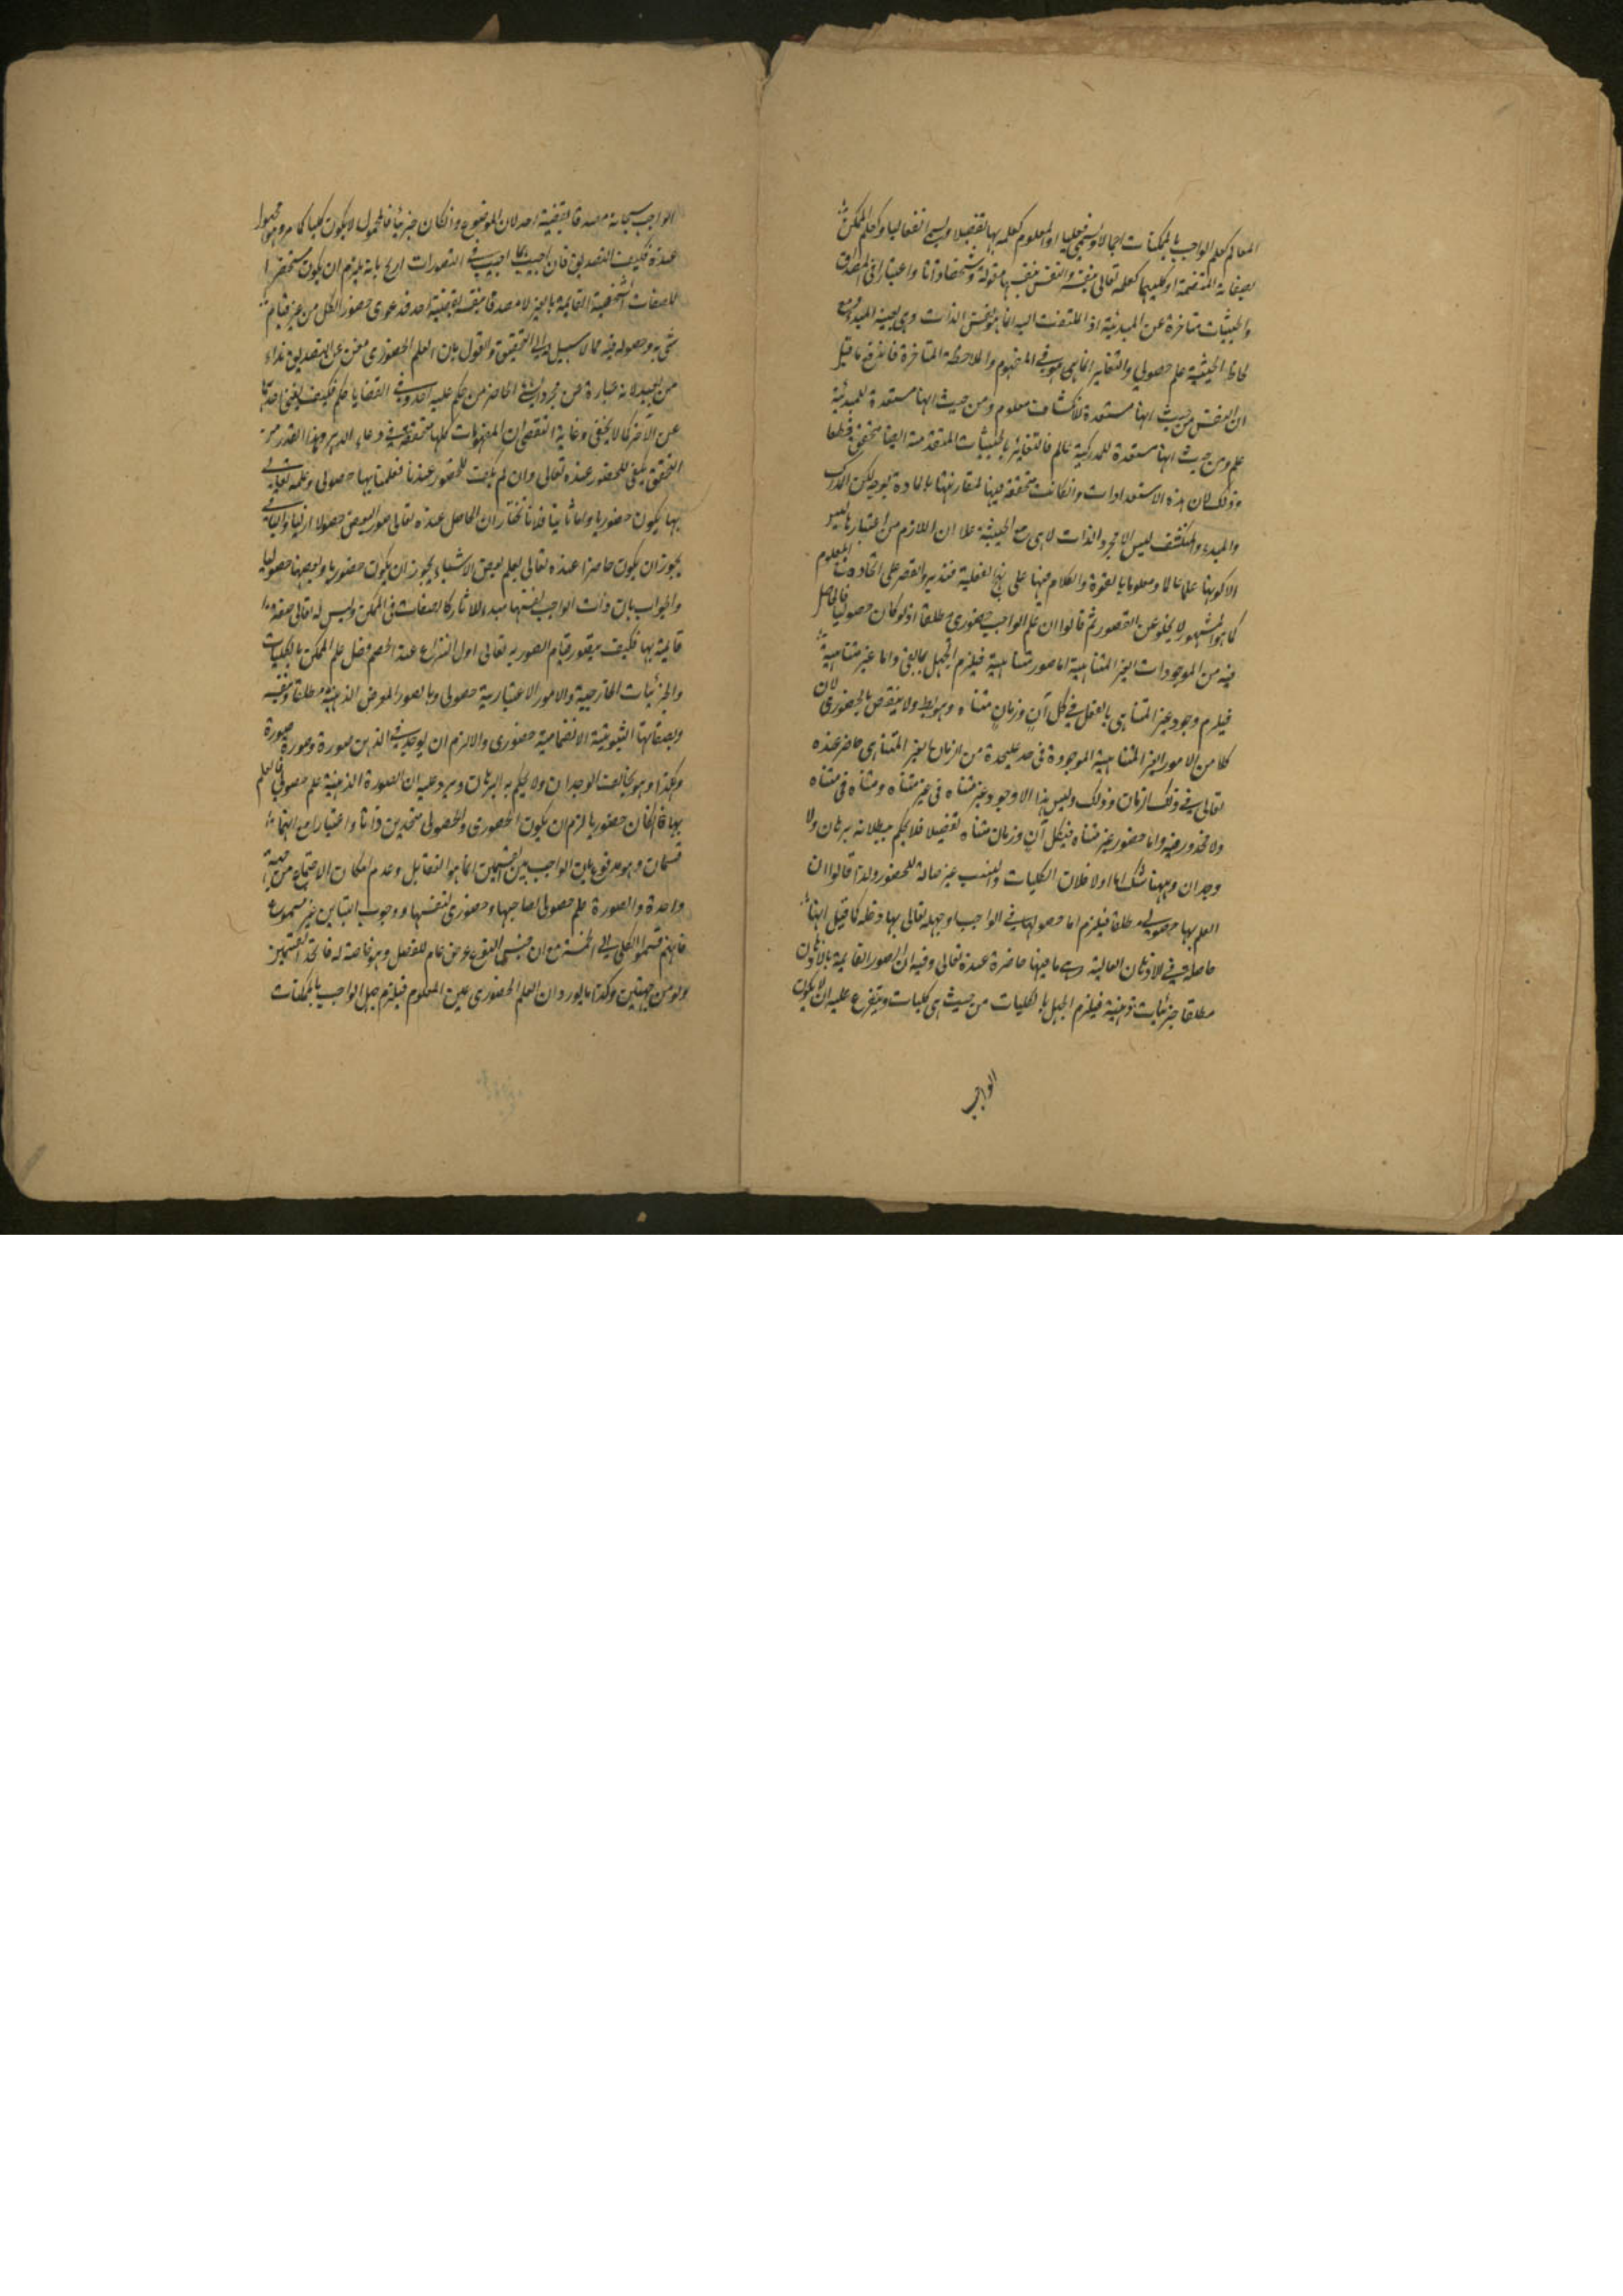 العالم كعلم الواجب بالممكنات اجمالا ويسمى فعليا او المعلوم كعلمه بها تفصيلا ويسمى انفعاليا وكعلم الممكن
بصفاته المنضمة او كليهما كعلمه تعالى بنفسه والنفس بنفسها مقولة وتشخصا وذاتا واعتبارا في المصداق
والحيثيات متاخرة عن المبدئية اذ الملتفت اليه انما هو نفس الذات وهي بعينه المبدء ومع
لحاظ الحيثية علم حصولي والتغاير انما هو في المفهوم والملاحظة المتاخرة فاندفع ما قيل
ان النفس من حيث انها مستعدة لانكشاف معلوم ومن حيث انها مستعدة للمبدئية
علم ومن حيث انها مستعدة للمدركية عالم فالتغاير بالحيثيات المتقدمة ايضا متحقق قطعا
وذلك لان هذه الاستعدادات وان كانت متحققة فيها لمقارنتها بالمادة بوجه لكن المدرك
والمبدء والمنكشف ليس الا مجرد الذات لا هي مع الحيثية علا ان اللازم من اعتبارها ليس
الا كونها علما عالما ومعلوما بالقوة والكلام فيها على نهج الفعلية فتدبر والقصر على اتحاده مع المعلوم
كما هو المشهور لا يخلو عن القصور ثم قالوا ان علم الواجب حضوري مطلقا اذ لو كان حصوليا فالحاصل
فيه من الموجودات الغير المتناهية اما صور متناهية فيلزم الجهل بما بقي واما غير متناهية
فيلزم وجود غير المتناهي بالفعل في كل آن وزمان متناه وهو باطل ولا ينقض بالحضوري لان
كلا من الامور الغير المتناهية الموجودة في حد عليحدة من الزمان الغير المتناهي حاضر عنده
تعالى في ذلك الزمان وذلك وليس هذا الا وجود غير متناه في غير متناه ومتناه في متناه
ولا محذور فيه واما حضور غير متناه في كل آن وزمان متناه تفصيلا فلا يحكم ببطلانه برهان ولا
وجدان وههنا شك اما اولا فلان الكليات والنسب غير صالحة للحضور ولذا قالوا ان
العلم بها حصولي مطلقا فيلزم اما حصولها في الواجب او جهله تعالى بها وقد كما قيل انها
حاصلة في الاذهان العالية وهي ما فيها حاضرة عنده تعالى وفيه ان الصور القايمة بالاذهان
مطلقا جزئيات ذهنية فيلزم الجهل بالكليات من حيث هي كليات ويتفرع عليه ان لا يكون
الواجب
الواجب سبحانه مصدقا بقضية احد لان الموضوع وان كان جزئيا فالمحمول لا يكون كليا كما مر وهو مجهول
عنده فكيف التصديق فان اجيب بما اجيب في التصورات اريح بانه يلزم ان يكون مستحضرا
للصفات الشخصية القايمة بالغير لا مصدقا بنفسه بقضية احد فدعوى حضور الكل من غير قيام
شئ به وحصوله فيه مما لا سبيل اليه الا التحقيق والقول بان العلم الحضوري مغن عن التصديق نداء
من بعيد لانه عبارة عن مجرد الشئ الحاضر من حكم عليه احد وفي القضايا حكم فكيف يغني احدهما
عن الآخر كما لا يخفى وغاية التفصي ان المفهومات كلها متحققة في وعاء الدهر وهذا القدر من
التحقق يكفي للحضور عنده تعالى وان لم يكف للحضور عندنا فعلمنا بها حصولي وعلمه تعالى
بها يكون حضوريا واما ثانيا فلانا نختار ان الحاصل عنده تعالى صور البعض حصولا ازليا والباقي
يجوز ان يكون حاضرا عنده تعالى بعلم بعض الاشياء يجوز ان يكون حضوريا وبعضها حصوليا
والجواب بان ذات الواجب بنفسها مبدء للاثار كالصفات في الممكن وليس له تعالى صفة
قايمة بها فكيف يتصور قيام الصور به تعالى اول النزاع عند الخصم وقيل علم الممكن بالكليات
والجزئيات الخارجية والامور الاعتبارية حصولي وبالصور الذهنية مطلقا وبنفسه
وبصفاتها الثبوتية الانضمامية حضوري والا لزم ان يوجد في الذهن صورة وصورة صورة
وهكذا وهو يخالف الوجدان ولا يحكم به البرهان ويرد عليه ان الصورة الذهنية علم حصولي فالعلم
بها فان كان حضوريا لزم ان يكون الحضوري والحصولي متحدين ذاتا واعتبارا مع انهما
قسمان وهو مدفوع بان الواجب بين القسمين انما هو التقابل وعدم امكان الاجتماع من جهة
واحدة والصورة علم حصولي لصاحبها وحضوري لنفسها ووجوب التباين غير مسموع
فانهم قسموا الكلي الى الخمسة مع ان جنس النوع عرض عام للفصل وهو خاصة له فاتحد القسمين
ولو من جهتين وكذا ما يورد ان العلم الحضوري عين المعلوم فيلزم جهل الواجب بالممكنات